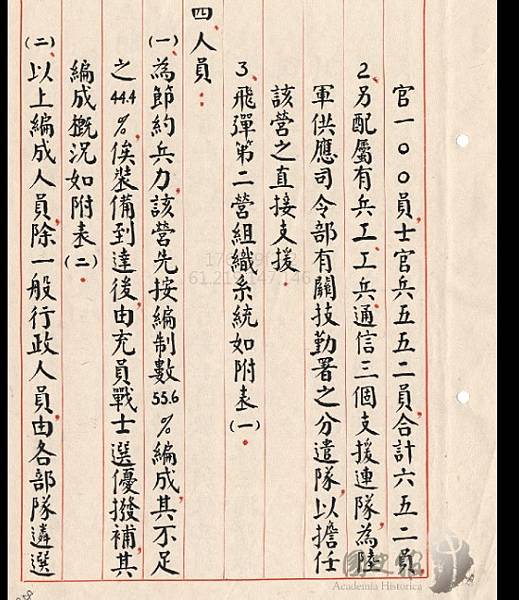 官一〇〇員，士官兵五五二員，合計六五二員，
2.另配屬有兵工、工兵、通信三個支援連隊，為陸
軍供應司令部有關技勤署之分遣隊，以擔任
該營之直接支援。
3.飛彈第二營組織系統如附表(一)。
四、人員：
(一)為節約兵力，該營先按編制數55.6%編成，其不足
之44.4%俟裝備到達後，由充員戰士選優撥補，其
編成概況如附表(二)。
(二)以上編成人員，除一般行政人員，由各部隊遴選
國史館
Academia Historica